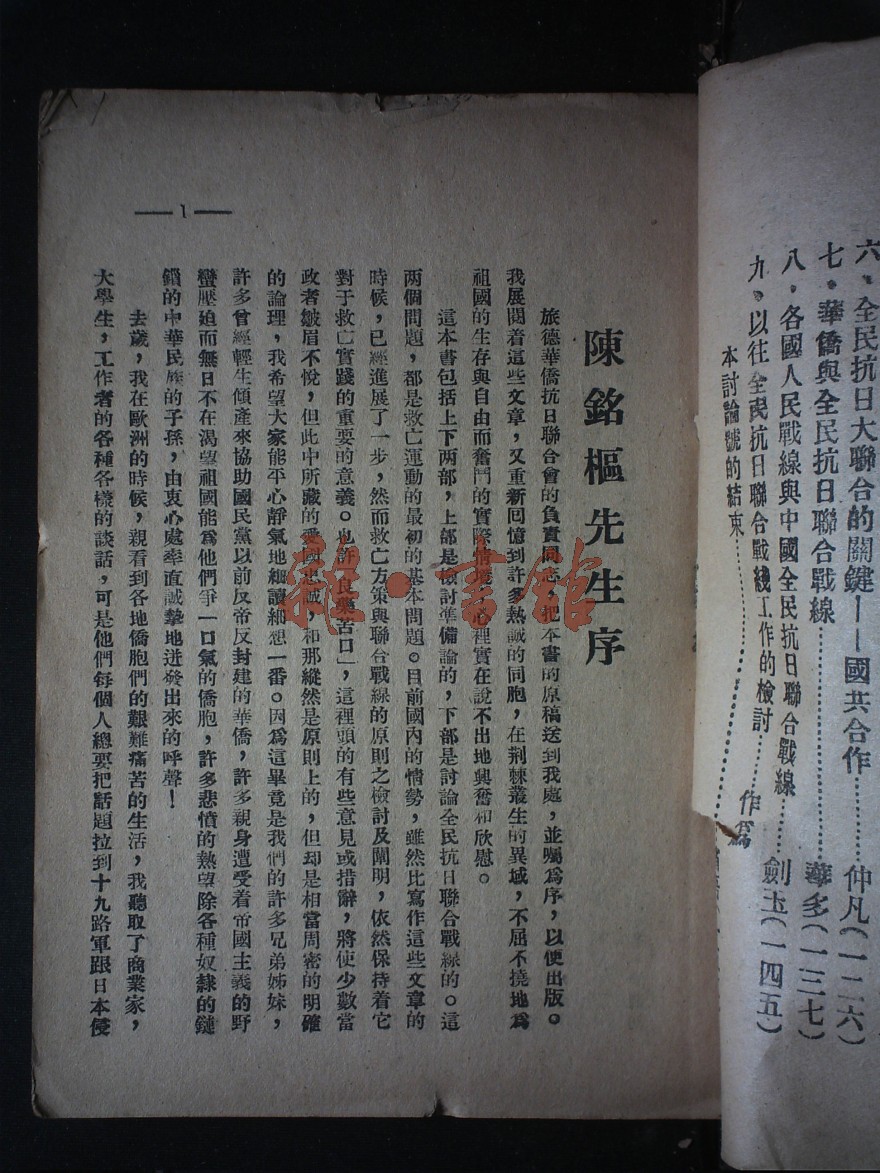 六、全民抗日大聯合的關鍵——國共合作………仲凡(一二六)
七、華僑與全民抗日聯合戰線………華多(一三七)
八、各國人民戰線與中國全民抗日聯合戰線………劍玉(一四五)
九、以往全民抗日聯合戰綫工作的檢討……作爲
本討論號的結束………
陳銘樞先生序
旅德華僑抗日聯合會的負責同志,把本書的原稿送到我處,並囑爲序,以便出版。
我展閱着這些文章,又重新回憶到許多熱誠的同胞,在荆棘叢生的異域,不屈不撓地爲
祖國的生存與自由而奮鬥的實際情况,心裡實在說不出地興奮和欣慰。
這本書包括上下两部,上部是檢討準備論的,下部是討論全民抗日聯合戰線的。這
两個問題,都是救亡運動的最初的基本問題。目前國內的情勢,雖然比寫作這些文章的
時候,已經進展了一步,然而救亡方策與聯合戰線的原則之檢討及闡明,依然保持着它
對于救亡實踐的重要的意義。也許「良藥苦口」,這裡頭的有些意見或措辭,將使少數當
政者皺眉不悅,但此中所藏的愛國忠誠,和那縱然是原則上的,但却是相當周密的明確
的論理,我希望大家能平心靜氣地細讀細想一番。因爲這畢竟是我們的許多兄弟姊妹,
許多曾經輕生傾產來協助國民黨以前反帝反封建的華僑,許多親身遭受着帝國主義的野
蠻壓迫而無日不在渴望祖國能爲他們爭一口氣的僑胞,許多悲憤的熱望除各種奴隸的鏈
鎖的中華民族的子孫,由衷心處率直誠摯地迸發出來的呼聲!
去歲,我在歐洲的時候,親看到各地僑胞們的艱難痛苦的生活,我聽取了商業家,
大學生,工作者的各種各樣的談話,可是他們每個人總要把話題拉到十九路軍跟日本侵
— 1 —
雜·書館